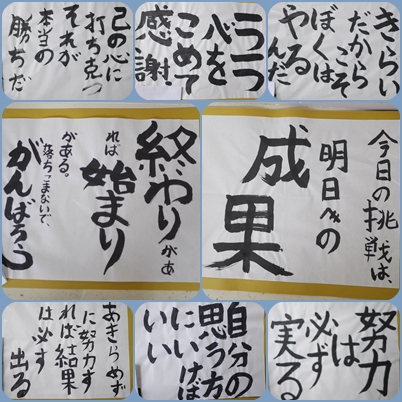 己の心に
打ち克つ
それが
本当の
勝ちだ
一つ一つ
心を
こめて
感謝
きらい
だからこそ
ぼくは
やるんだ
終わりがあ
れば
始まり
がある。
落ちこまないで、
がんばろう
今日の挑戦は、
明日への
成果
あきらめず
に努力す
れば結果
は必ず
出る
自分の
思う方
にいけば
いい
努力
は
必ず
実る